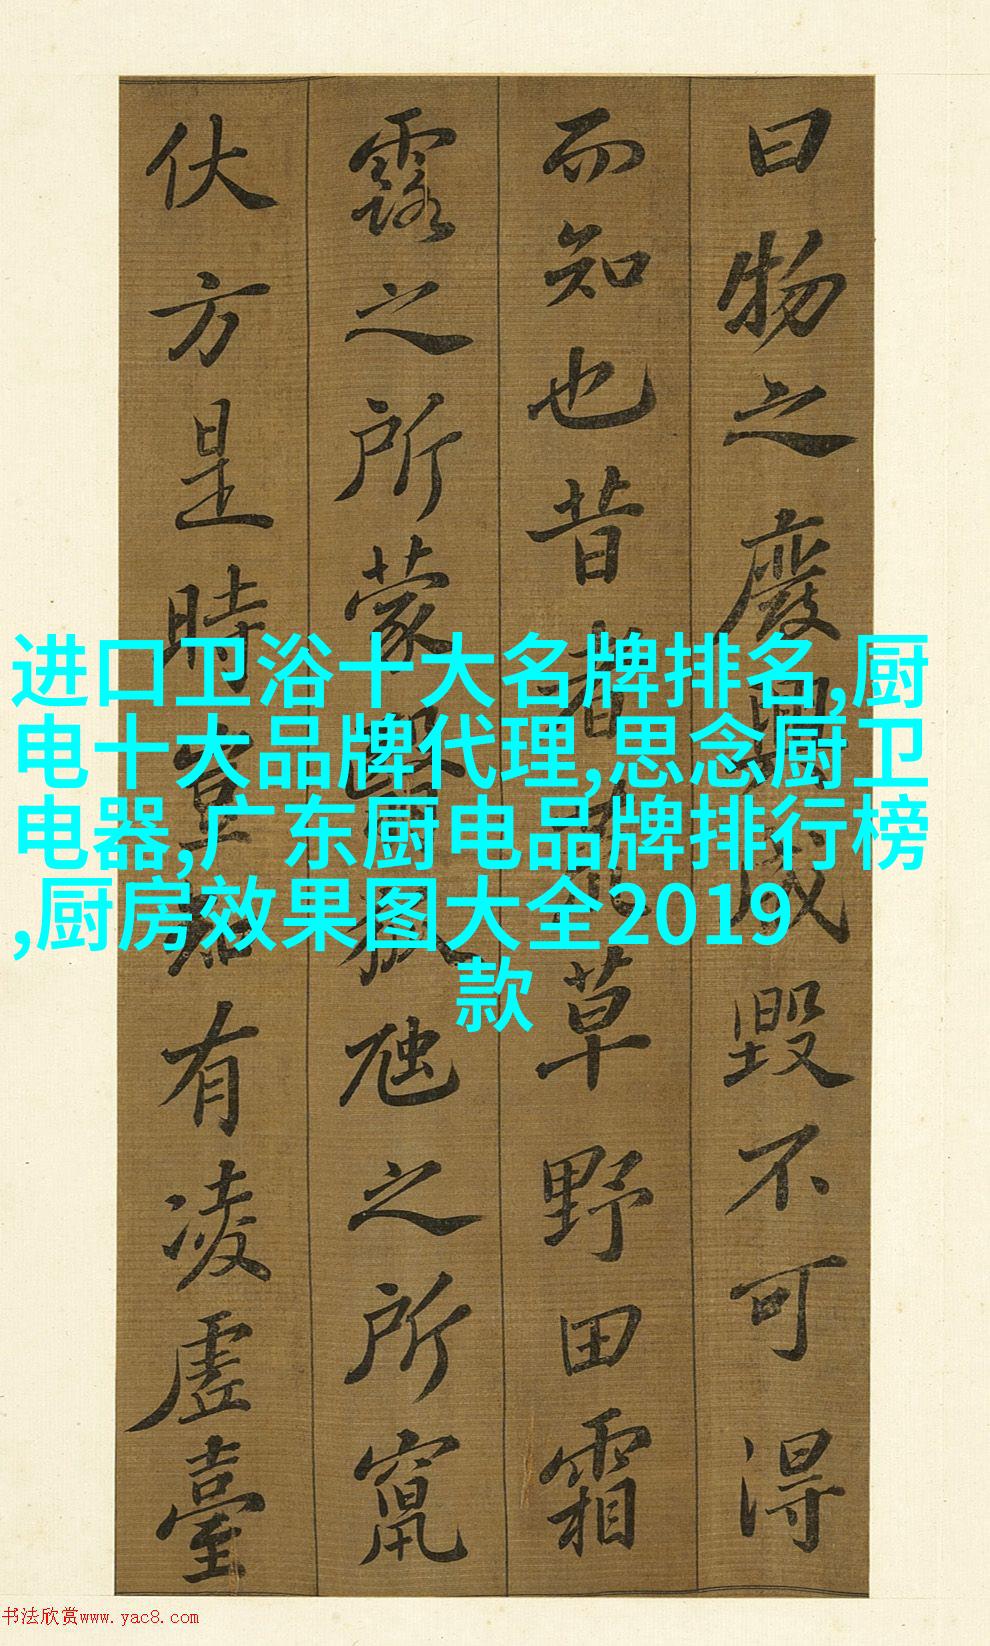 曰物之廢興成毀不可得
而知也昔者荒草野田霜
露之所蒙翳狐虺之所竄
伏方是時豈知有凌虛臺
进口卫浴十大名牌排名,厨
电十大品牌代理,思念厨卫
电器,广东厨电品牌排行榜
,厨房效果图大全2019
款
书法欣赏www.yac8.com